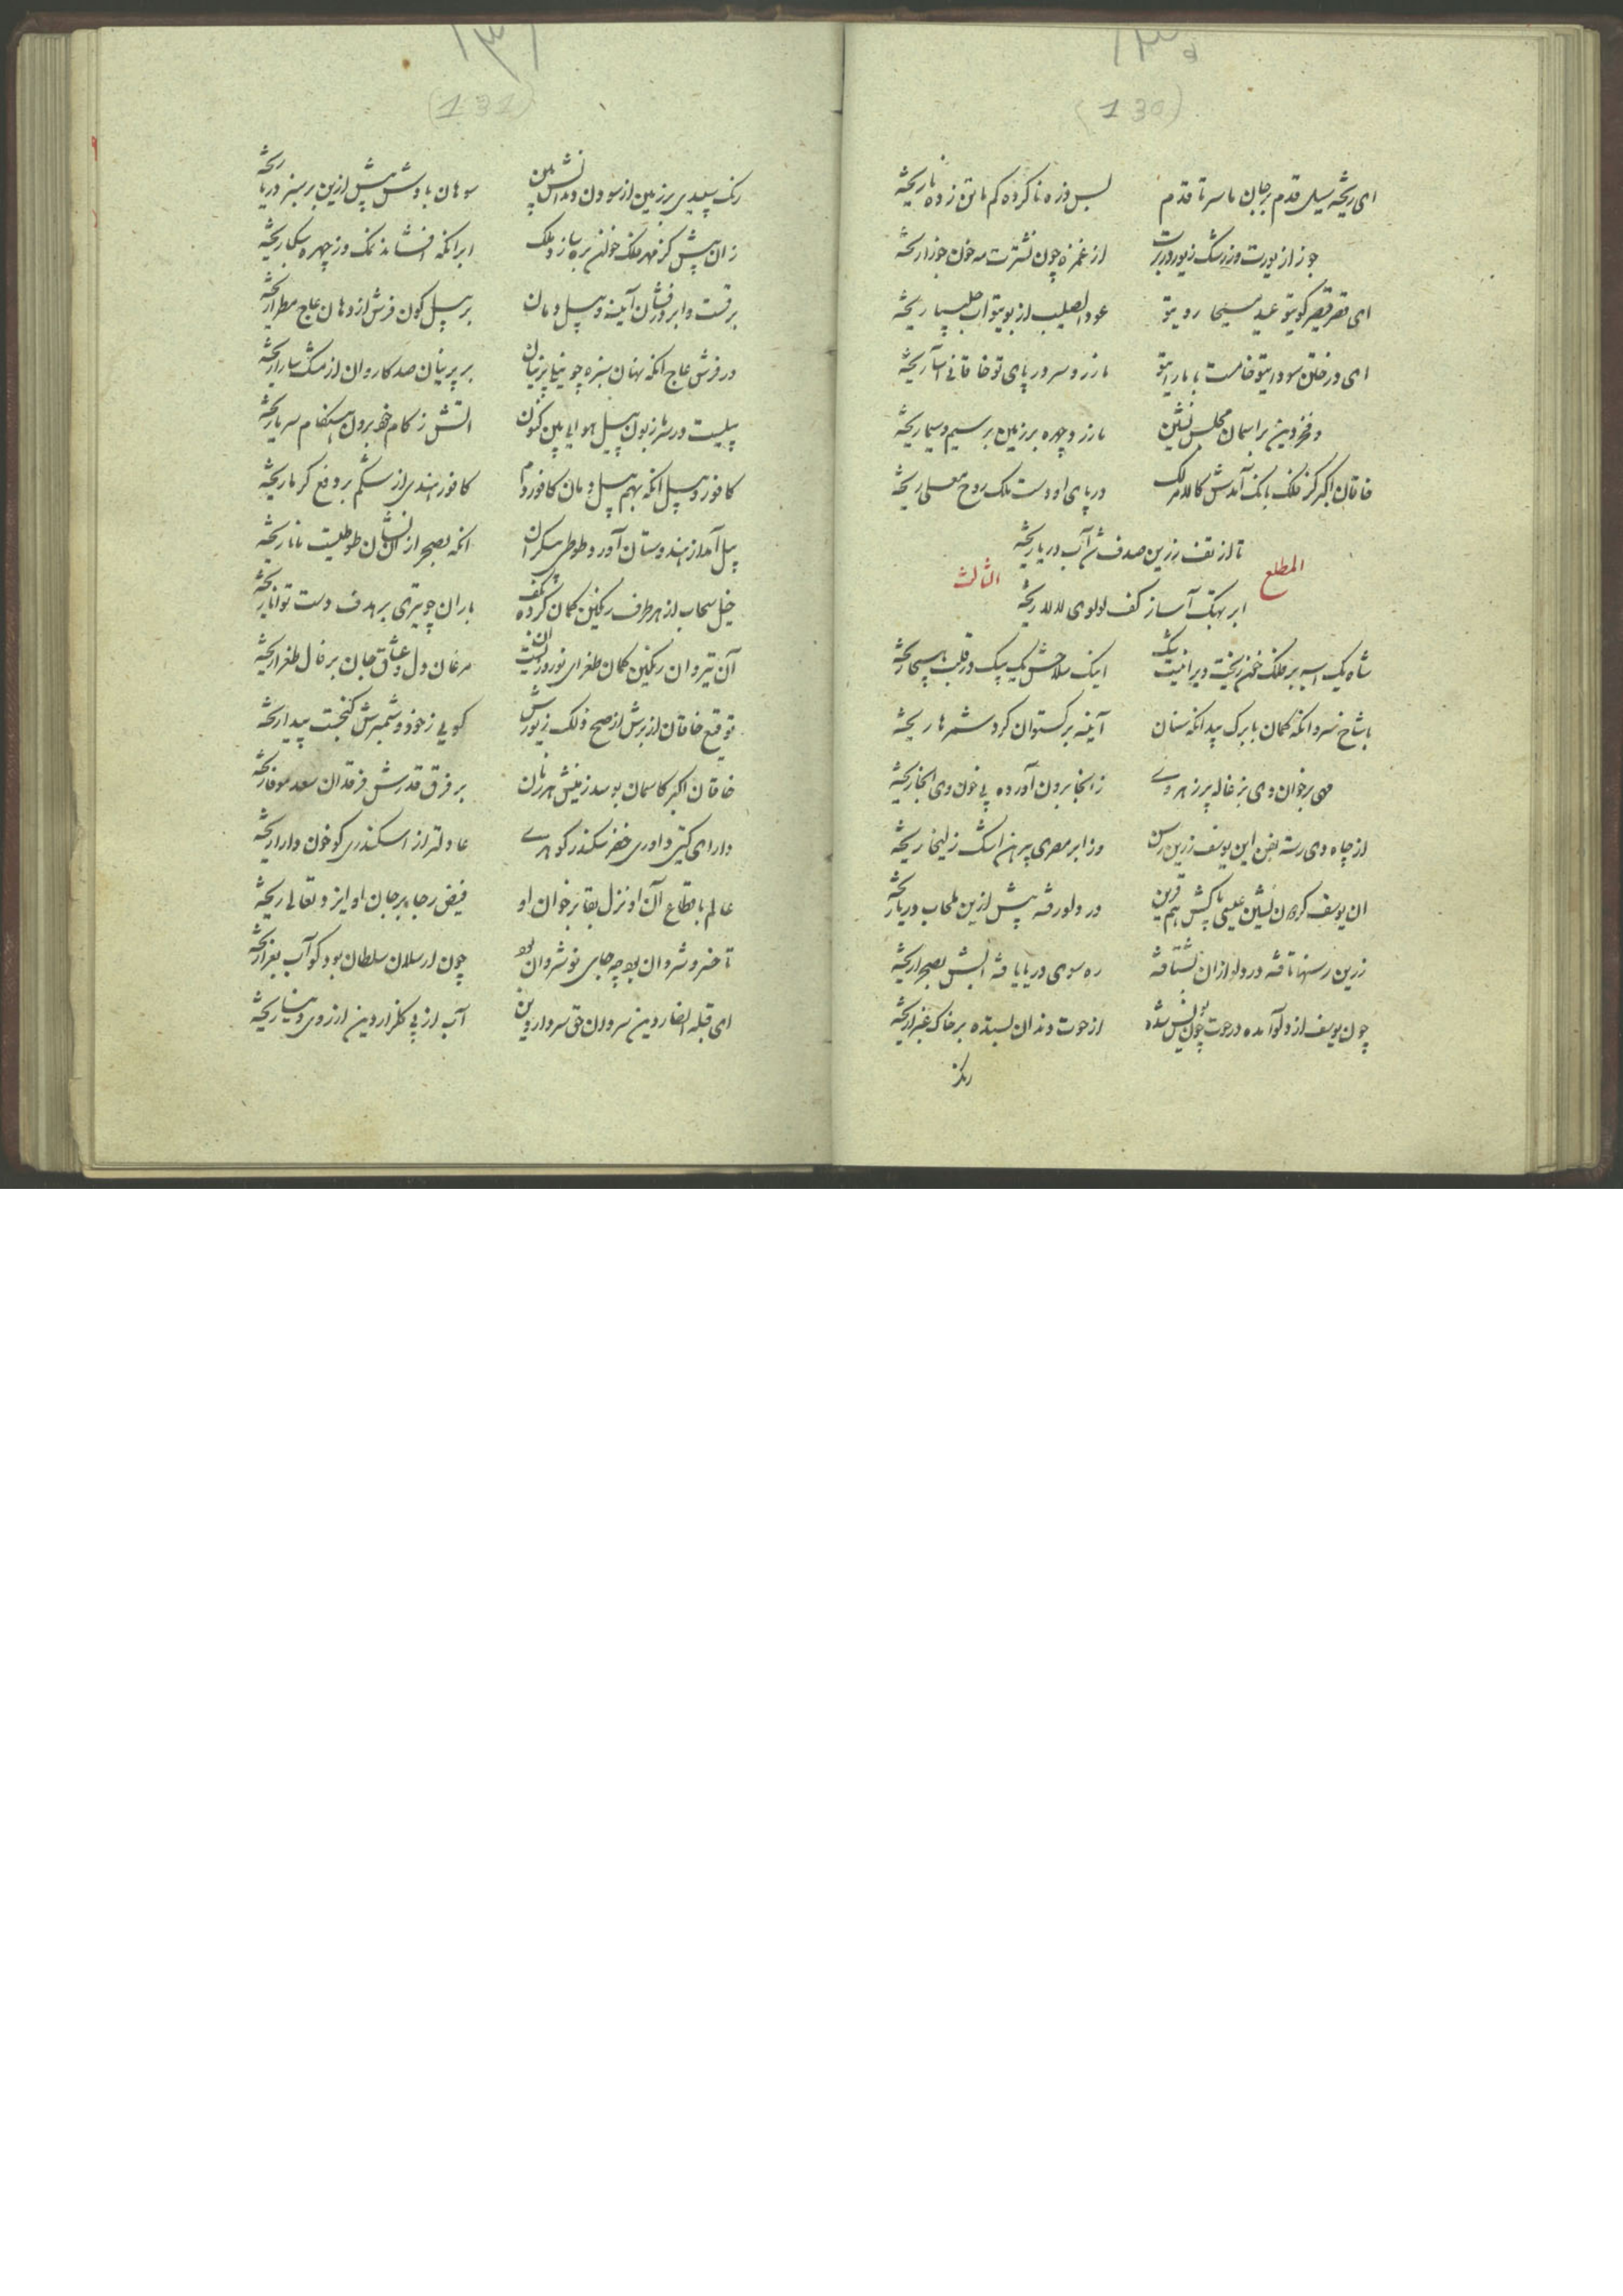 (130)
ای ریخته سیل قدم بر جان ما سر تا قدم
پس وزه ناکرده کم ما تو زده نا ریخته
جوزا ز یورت وز رشک زیور در برت
از غمزه چون نشترت مه خون جوزا ریخته
ای قصر قیصر کوی تو عید مسیحا روی تو
عود الصلیب از بوی تو آب چلیپا ریخته
ای در ختن سودای تو خامست با ما رای تو
ما زر و سر در پای تو خاقانی آسا ریخته
و فخر دین بر آسمان مجلس نشین
ما زر و چهره بر زمین بر سیم و سیما ریخته
خاقان اکبر کز فلک بانک آمدش کالامر لک
در پای او دست ملک روح معلی ریخته
المطلع
الثالث
تا از تف زرین صدف شد آب دریا ریخته
ابر نهنگ آسا ز کف لولوی لالا ریخته
شاه یک اسپه بر فلک خون ریخت دی را نیست شک
اینک سلاحش یک بیک در قلب هیجا ریخته
با شاخ سرو انکه کمان با برک بید انکه سنان
آیینه برگستوان گرد شمرها ریخته
بر خوان دی بزغاله پر زهر وی
ز انجا برون آورده پی خون دی انجا ریخته
از چاه دی رسته بفن این یوسف زرین رسن
وز ابر مصری پیرهن اشک زلیخا ریخته
ان یوسف کردون نشین عیسی پاکش هم قرین
در دلو رفته پیش ازین طحاب دریا ریخته
زرین رسنها تافته در دلو از ان بشتافته
ره سوی دریا یافته آبش بصحرا ریخته
چون یوسف از دلو آمده در حوت چون یونس شده
از حوت دندان بستده بر خاک غبرا ریخته
(131)
زنک سپیدی بر زمین از سودن دندانش بین
سوهان بادش پیش ازین بر سبز دریا ریخته
زان پیش کز مهر فلک خوان بره سازد ملک
ابر انکه افشاند نمک وز چهره سکبا ریخته
برقست و ابر درفشان آینه و پیل دمان
بر پیل کون فرش از دهان عاج مطرا ریخته
در فرش عاج انکه نهان سبزه چو مینا پرنیان
بر پرنیان صد کاروان از مشک سارا ریخته
پیلیست در سر زبون پیل هوایی بین کنون
آتش ز کام خود برون هنکام سرما ریخته
کافور و پیل انکه بهم پیل دمان کافور دم
کافور هندی از شکم بر دفع کرما ریخته
پیل آمد از هندوستان آورد طوطی بیکران
انکه بصحرا زان نشان طوطیست مانا ریخته
خیل سحاب از هر طرف رنکین کمان کرده بکف
باران چو تیری بر هدف دست توانا ریخته
آن تیر و ان رنکین کمان طغرای نوروز است ان
مرغان دل و عشاق جان بر فال طغرا ریخته
توقیع خاقان از برش از صح فلک زیورش
کویی ز خود دشمنرش گنجست پیدا ریخته
خاقان اکبر کاسمان بوسد زمینش هر زمان
بر فرق قدرش فرقدان سعد موفا ریخته
دارای کیتی داوری خضر سکندر کوهری
عادلتر از اسکندری کو خون دارا ریخته
عالم باقطاع آن او نزل بقا بر خوان او
فیض رجا بر جان او ایزد تعالی ریخته
تا خسرو شروان بود چه جای نوشروان بود
چون ارسلان سلطان بود کو آب بغرا ریخته
ای قبله انصار دین سر و ان حق سردار دین
آب از پی گلزار دین از روی دنیا ریخته